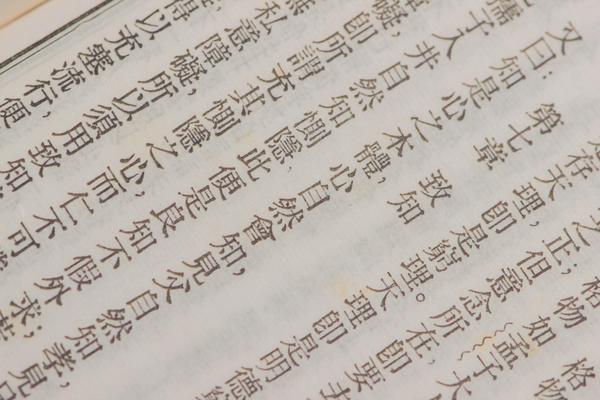 格物
格物如孟子大
之正;但意念所在,即要去
是存天理,即是窮理。天理即是明德
第七章 致知
又曰:知是心之本體,心自然會知,見父自然知孝,見
孺子入井自然知惻隱,此便是良知不假外求;
礙,即所謂充其惻隱之心而仁不可
私意障礙,所以須用致知
得以充塞流行,便